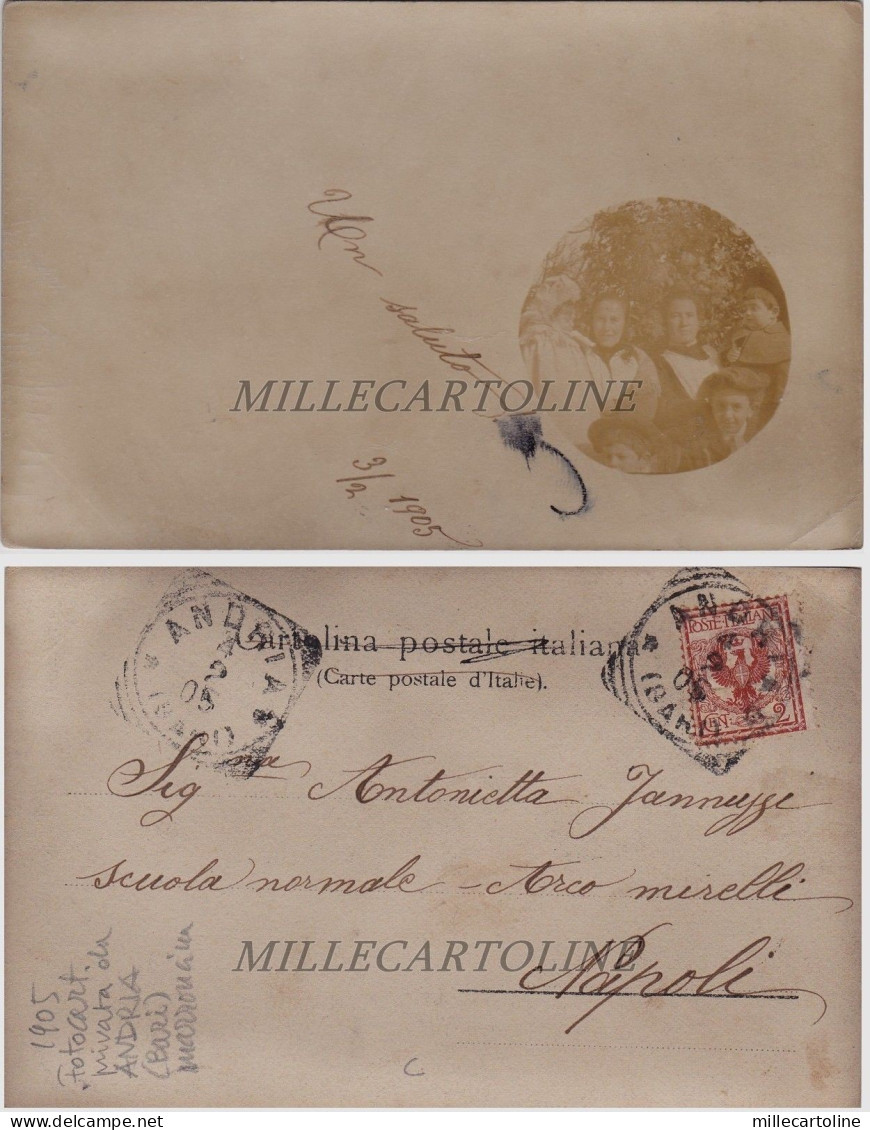 Un saluto
MILLECARTOLINE
3/2 1905
ANDRIA
(BARI)
05
ANDRIA
(BARI)
05
POSTE·ITALIANE
CEN. 2
Cartolina postale italiana
(Carte postale d'Italie).
Sig.na Antonietta Jannuzzi
scuola normale – Arco mirelli
MILLECARTOLINE
Napoli
1905
Fotocart.
privata da
ANDRIA
(Bari)
C
delcampe.net
millecartoline